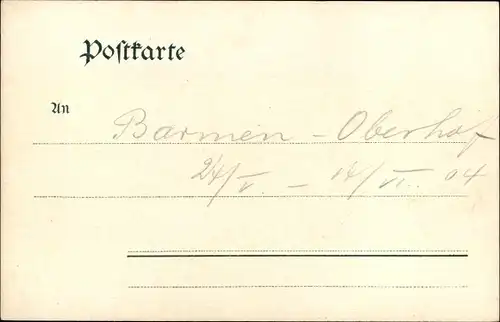 Postkarte
An
Barmen - Oberhof
24/V. - 14/VI. 04